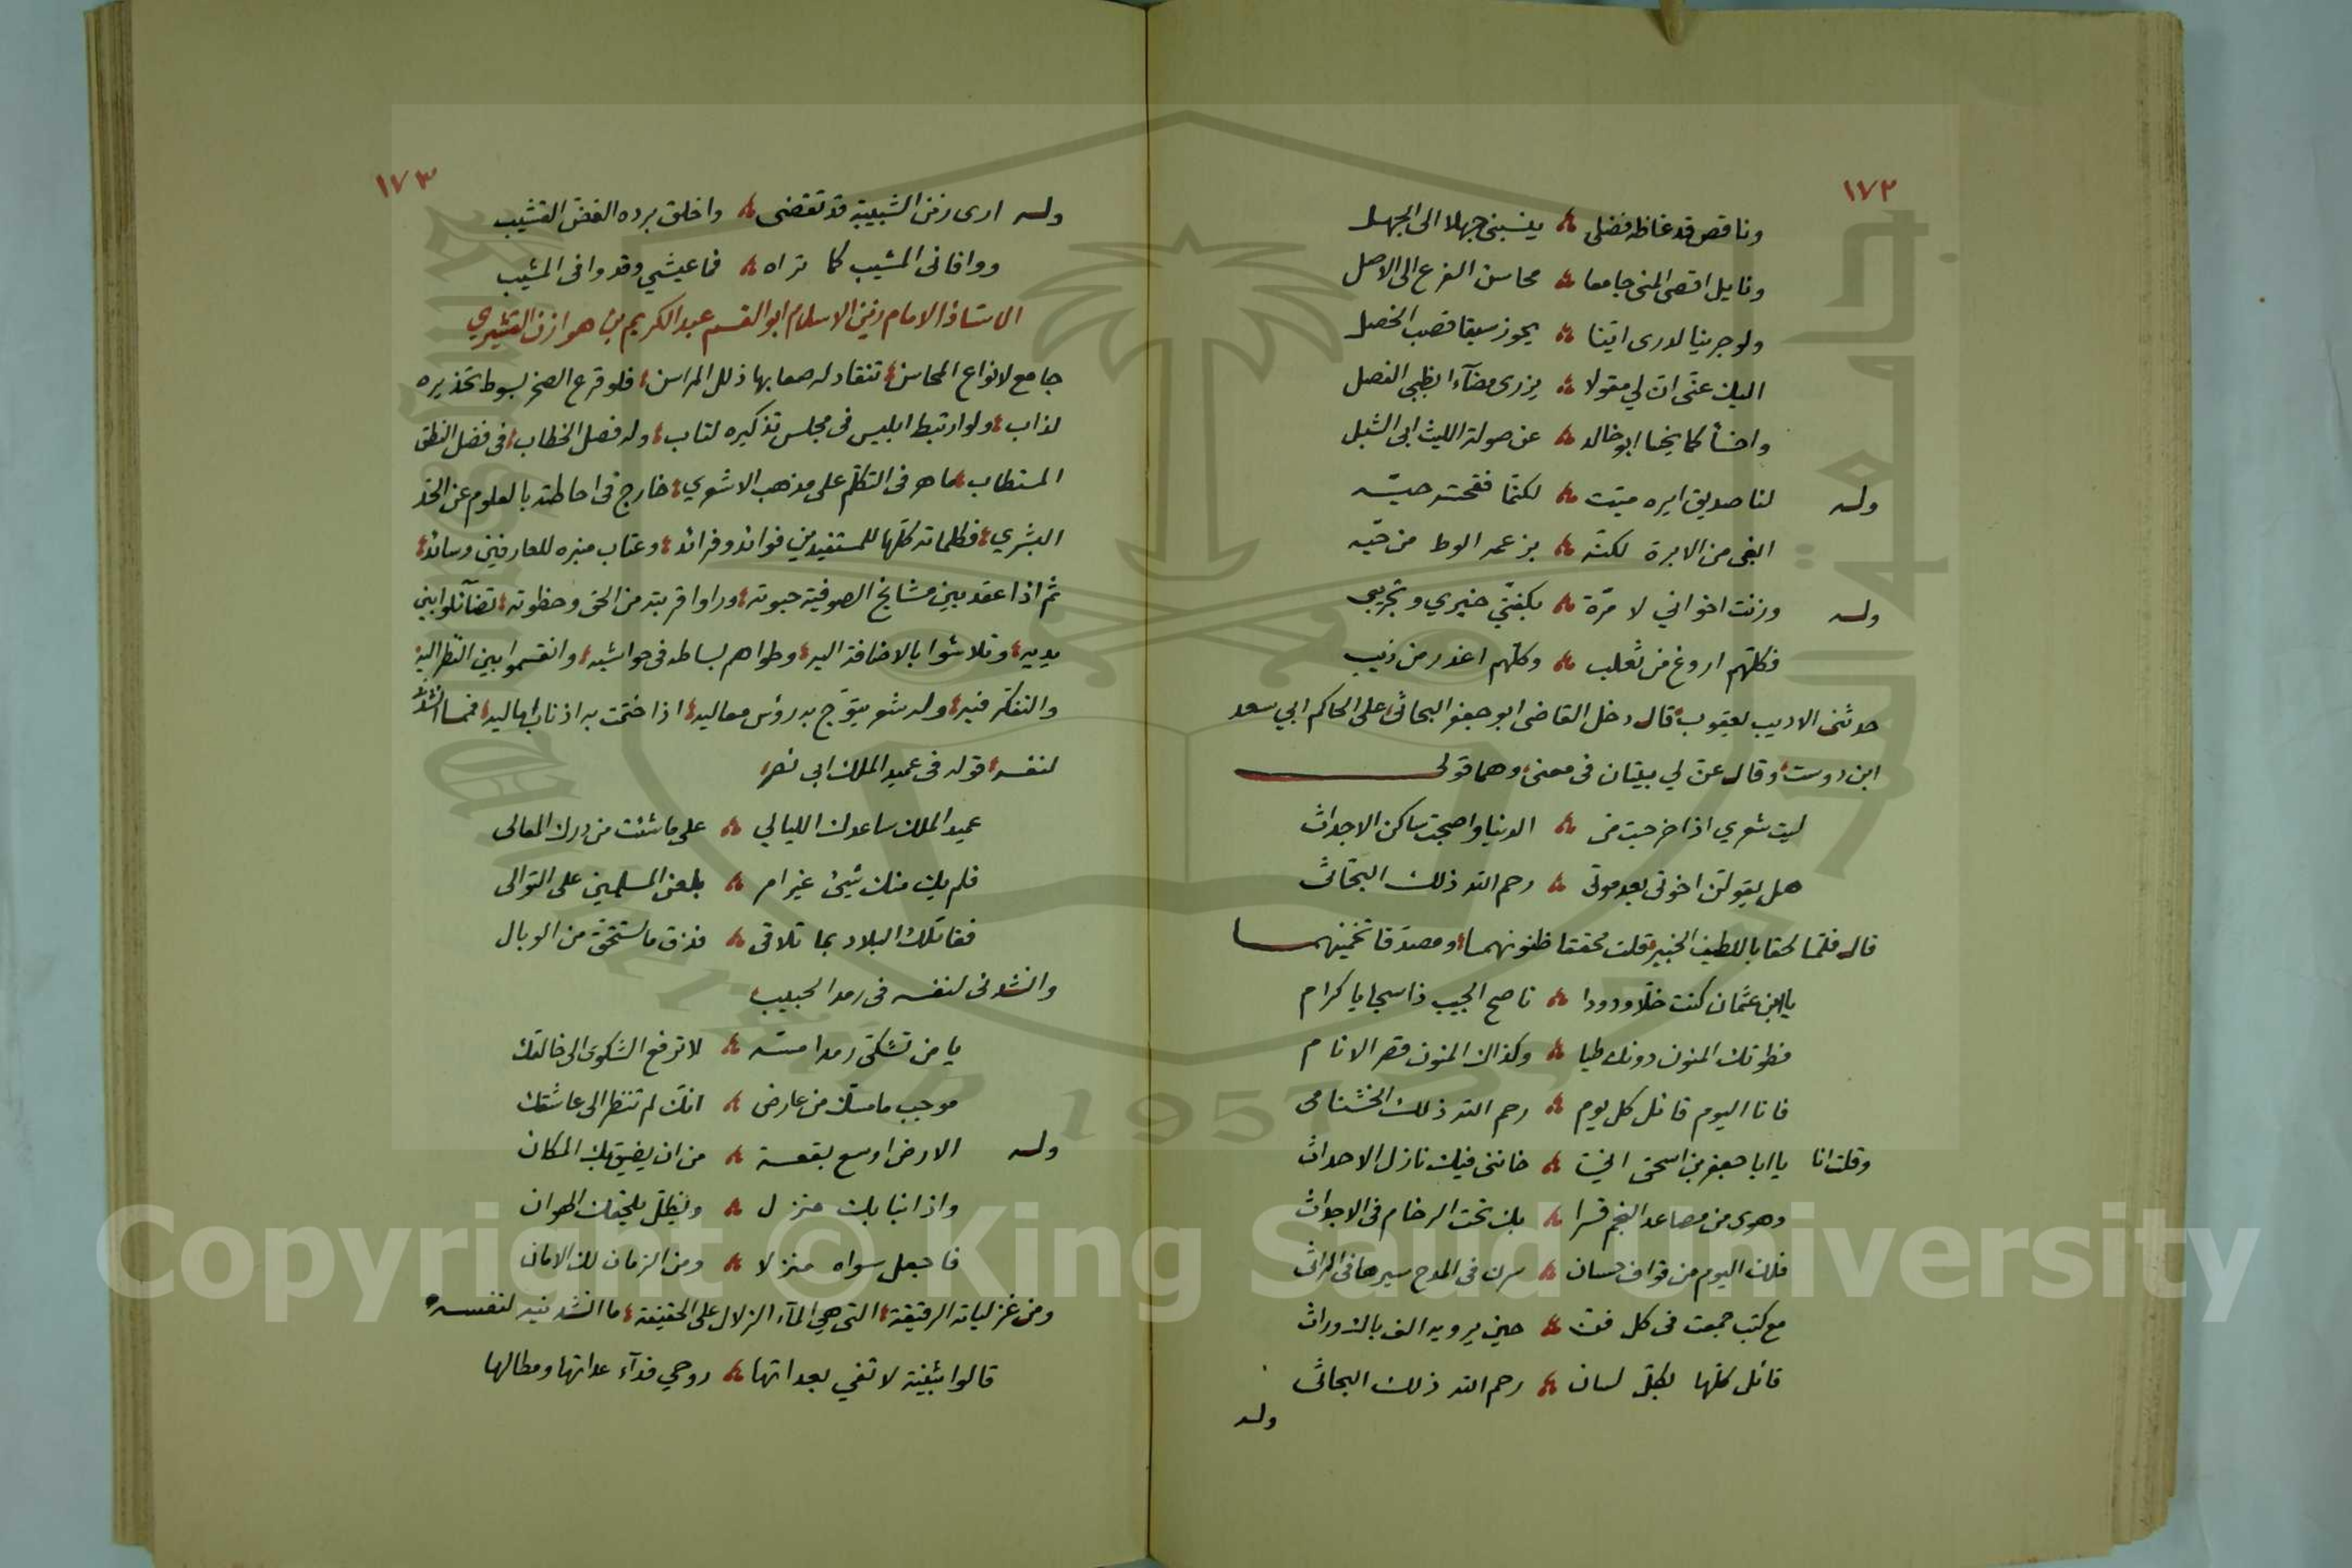 ١٧٢
وناقص قد غاظه فضلى ؞ ينسبنى جهلا الى الجهل
ونايل اقصى المنى جامعا ؞ محاسن الفرع الى الاصل
ولو جرينا لدرى اينا ؞ يحوز سبقا قصب الخصل
اليك عنى ان لي مقولا ؞ يزرى مضآء بظبى الفصل
واخسأ كما يخسا ابو خالد ؞ عن صولة الليث ابى الشبل
وله لنا صديق ايره ميت ؞ لكنما فقحته حيه
ابغى من الابرة لكنه ؞ يزعم الوط من حيه
وله وزنت اخواني لا مرة ؞ بكفتي خبري وتجريبى
فكلهم اروغ من ثعلب ؞ وكلهم اغدر من ذيب
حدثنى الاديب يعقوب قال دخل القاضى ابو جعفر البحاثى على الحاكم ابي سعد
ابن دوست وقال عن لي بيتان فى معنى وهما قولى
ليت شعري اذا خرجت من ؞ الدنيا واصبحت ساكن الاجداث
هل يقولن اخوتى بعد موتى ؞ رحم الله ذلك البحاثى
قال فلما لحقا باللطيف الخبير قلت محققا ظنونهما ومصدقا تخمينهما
يا ابن عثمان كنت خلا ودودا ؞ ناصح الجيب ذا سجايا كرام
فطوتك المنون دونك طيا ؞ وكذاك المنون قصر الانام
فانا اليوم قائل كل يوم ؞ رحم الله ذلك الخشنامى
وقلت انا يا ابا جعفر بن اسحق انى ؞ خاننى فيك نازل الاحداث
وهوى من مصاعد النجم قسرا ؞ بك تحت الرخام فى الاجداث
فلك اليوم من قواف حسان ؞ سرن فى المدح سيرها فى المراثى
مع كتب جمعت فى كل فن ؞ حين يرويه الف باك وراث
قائل كلها بكل لسان ؞ رحم الله ذلك البحاثى
وله
١٧٣
وله ارى زمن الشبيبة قد تقضى ؞ واخلق برده الغض القشيب
ووافانى المشيب كما تراه ؞ فما عيشي وقد وافى المشيب
الاستاذ الامام زين الاسلام ابو القسم عبد الكريم بن هوازن القشيري
جامع لانواع المحاسن تنقاد له صعابها ذلل المراسن فلو قرع الصخر بسوط تحذيره
لذاب ولو ارتبط ابليس فى مجلس تذكيره لتاب وله فصل الخطاب فى فضل النطق
المستطاب ماهر فى التكلم على مذهب الاشعري خارج فى احاطته بالعلوم عن الحد
البشري فكلماته كلها للمستفيدين فوائد وفرائد وعتاب منبره للعارفين وسائد
ثم اذا عقد بين مشايخ الصوفية حبوته وراوا قربته من الحق وحظوته تضآئلوا بين
يديه وتلاشوا بالاضافة اليه وطواهم بساطه فى حواشيه وانقسموا بين النظر اليه
والتفكر فيه وله شعر يتوج به رؤس معاليه اذا ختمت به اذناب اماليه فمما انشدنى
لنفسه قوله فى عميد الملك ابى نصر
عميد الملك ساعدك الليالي ؞ على ما شئت من درك المعالى
فلم يك منك شيئ غير امر ؞ بلعن المسلمين على التوالى
فقاتلك البلاد بما تلاقى ؞ فذق ما تستحق من الوبال
وانشدنى لنفسه فى رمد الحبيب
يا من تشكى رمدا مسه ؞ لا ترفع الشكوى الى خالقك
موجب ما مسك من عارض ؞ انك لم تنظر الى عاشقك
وله الارض اوسع بقعة ؞ من ان يضيق بك المكان
واذا نبا بك منزل ؞ ويظل يلحقك الهوان
فاجعل سواه منزلا ؞ ومن الزمان لك الامان
ومن غزلياته الرقيقة التى هي المآء الزلال على الحقيقة ما انشدنيه لنفسه
قالوا بثينة لا تفي بعداتها ؞ روحي فدآء عداتها ومطالها